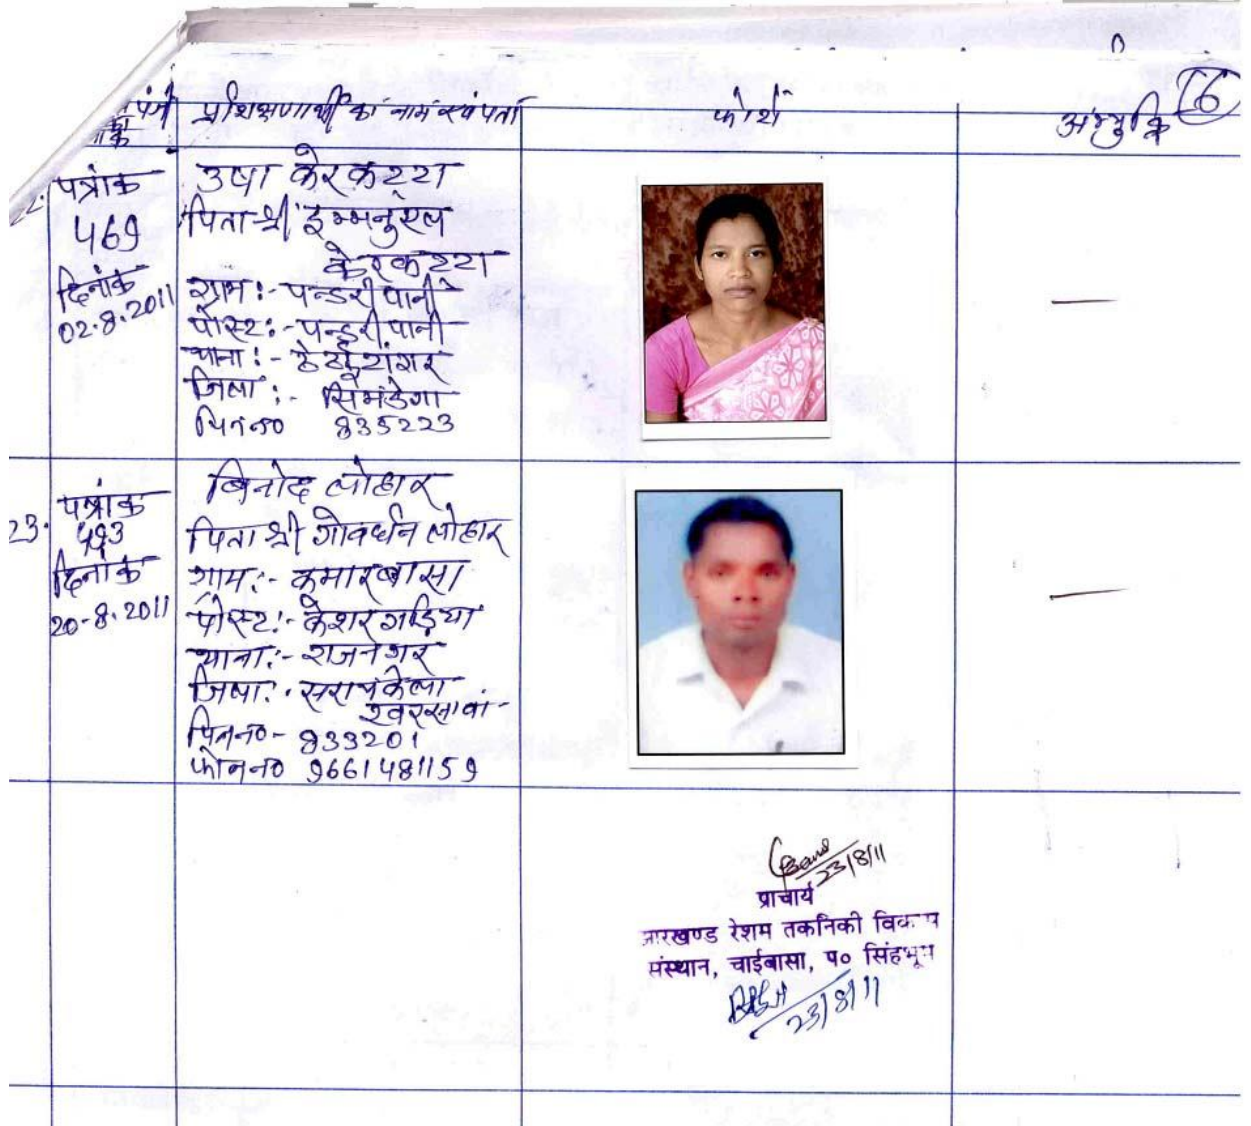 16
प्रशिक्षणार्थी का नाम एवं पता
फोटो
अभ्युक्ति
पत्रांक
469
दिनांक
02.8.2011
उषा केरकट्टा
पिता श्री इम्मनुएल
केरकट्टा
ग्राम :- पन्डरीपानी
पोस्ट :- पन्डरीपानी
थाना :-
जिला :- सिमडेगा
पिन न० 835223
23.
पत्रांक
493
दिनांक
20-8.2011
बिनोद लोहार
पिता श्री गोवर्धन लोहार
ग्राम :- कुमारबासा
पोस्ट :- केशरगड़िया
थाना :- राजनगर
जिला :- सरायकेला
खरसावां -
पिन न० - 833201
फोन न० 9661481159
23/8/11
प्राचार्य
झारखण्ड रेशम तकनिकी विकास
संस्थान, चाईबासा, प० सिंहभूम
23/8/11